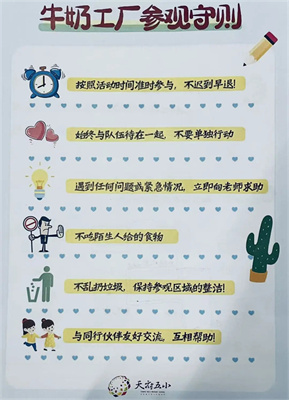 牛奶工厂参观守则
按照活动时间准时参与，不迟到早退!
始终与队伍待在一起，不要单独行动
遇到任何问题或紧急情况，立即向老师求助
不吃陌生人给的食物
不乱扔垃圾，保持参观区域的整洁!
与同行伙伴友好交流，互相帮助!
天府五小